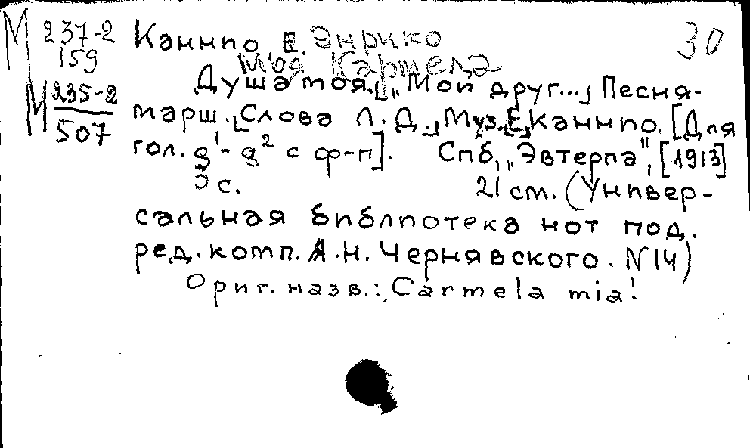 М 237-2 Каннпо Е. Энрико 30
159 моя Кармела
М 235-2 Душа моя. [„Мой друг...] Песня-
507 марш. [Слова Л. Д., Муз. Е. Каннпо. [Для
гол. g¹- g² с ф-п]. Спб, „Эвтерпа“, [1913]
3 с. 21 см. (Универ-
сальная библиотека нот под.
ред. комп. А. Н. Чернявского. N 14)
Ориг. назв.: Carmela mia!